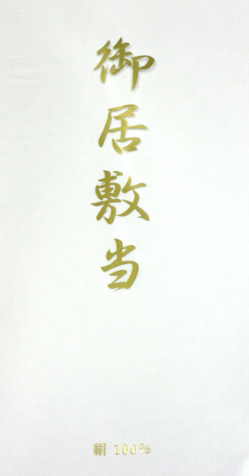 御居敷当
絹 100%